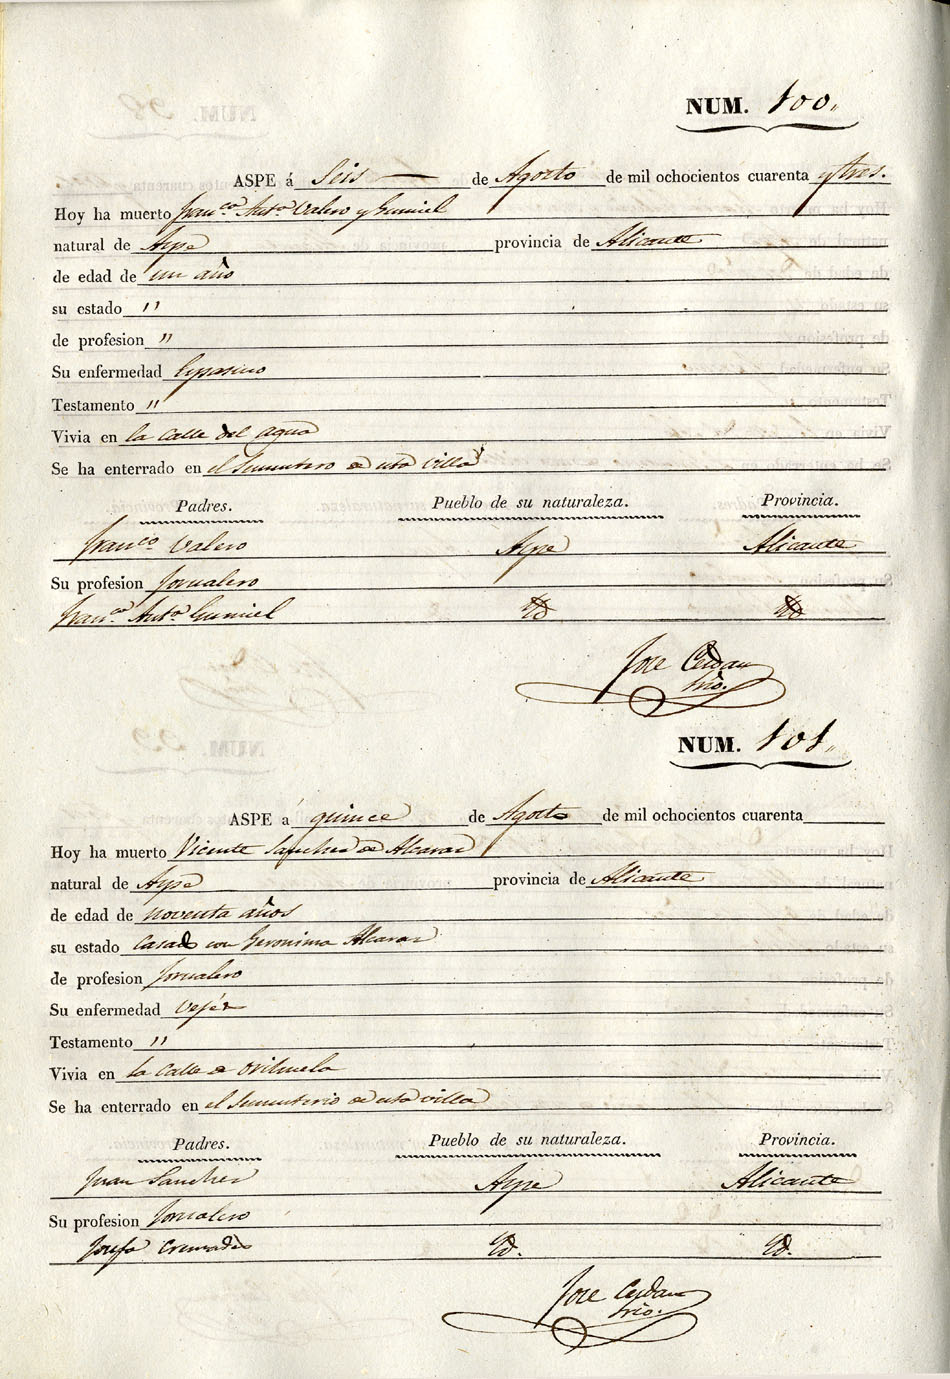 NUM. 100.
ASPE á Seis de Agosto de mil ochocientos cuarenta y tres.
Hoy ha muerto Franco. Anto. Valero y Gumiel
natural de Aspe provincia de Alicante
de edad de un año
su estado "
de profesion "
Su enfermedad
Testamento "
Vivia en la calle del agua
Se ha enterrado en el Sementero de esta villa
Padres. Pueblo de su naturaleza. Provincia.
Franco. Valero Aspe Alicante
Su profesion Jornalero
Franca. Anta. Gumiel Id Id
Jose Cerdan
Srio.
NUM. 101.
ASPE á quince de Agosto de mil ochocientos cuarenta
Hoy ha muerto Vicente Sanchez de Alcaraz
natural de Aspe provincia de Alicante
de edad de noventa años
su estado Casado con Geronima Alcaraz
de profesion Jornalero
Su enfermedad Vejéz
Testamento "
Vivia en la Calle de Orihuela
Se ha enterrado en el Sementerio de esta villa
Padres. Pueblo de su naturaleza. Provincia.
Juan Sanchez Aspe Alicante
Su profesion Jornalero
Josefa Cremades Id. Id.
Jose Cerdan
Srio.